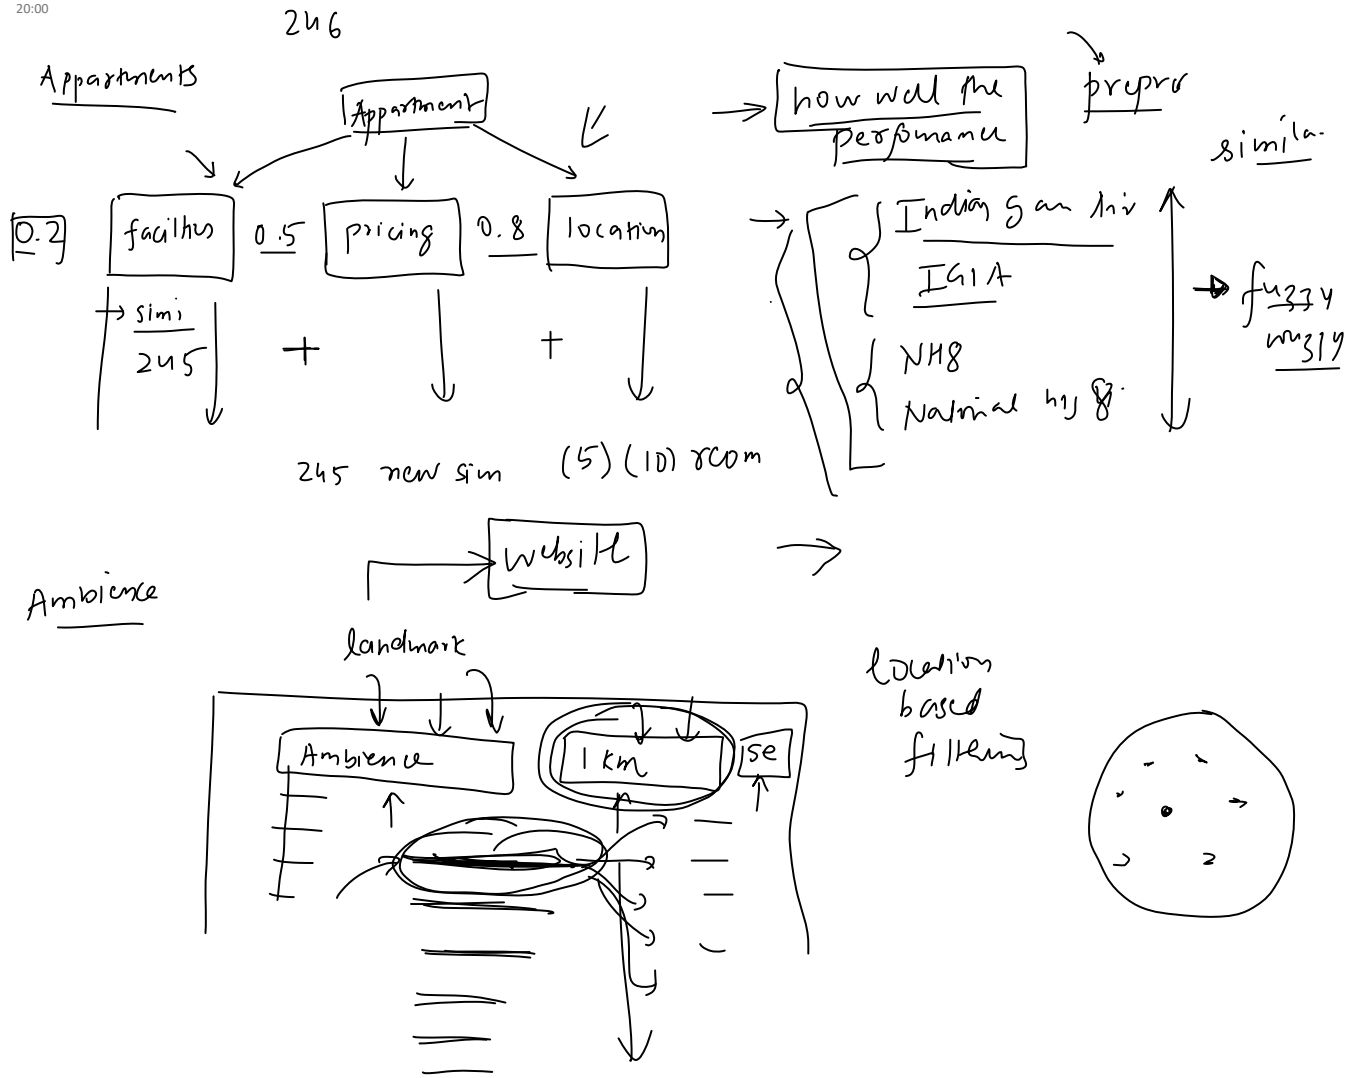 20:00
246
Appartments
Appartment
how well the
perfomance
prepro
simila.
0.2
facilties
0.5
pricing
0.8
location
simi
245
+
+
Indian
IGIA
NH8
National hy 8
fuzzy
245 new sim (5) (10) rcom
website
Ambience
landmark
Ambience
1 km
se
location
based
filtering